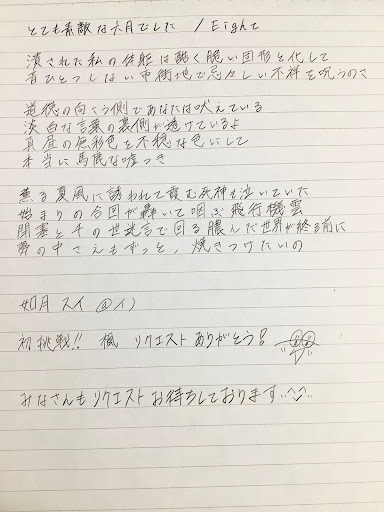 とても素敵な六月でした / Eight
潰された私の体躯は酷く脆い固形と化して
音ひとつしない市街地で忌々しい不祥を呪うのさ
道徳の向こう側であなたは吠えている
淡白な言葉の裏側が透けているよ
真昼の無彩色を不穏な色にして
本当に馬鹿な嘘つき
薫る夏風に誘われて霞む死神も泣いていた
始まりの合図が轟いて咽ぶ飛行機雲
閉塞と千の世迷言で回る膿んだ世界が終る前に
夢の中さえもずっと、焼きつけたいの
如月 スイ @イ)
初挑戦!! 楓 リクエスト ありがとう!
みなさんも リクエスト お待ちしております ^^